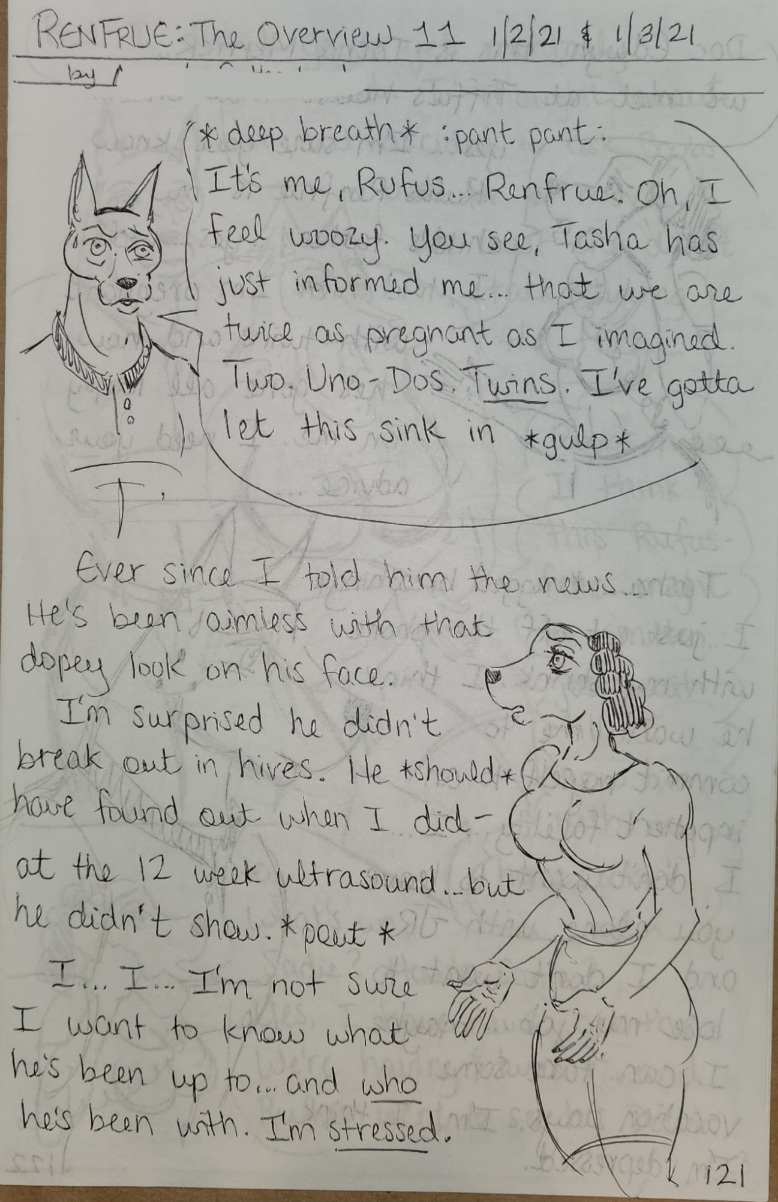 RENFRUE: The Overview 11 1/2/21 & 1/3/21
by
*deep breath* :pant pant:
It's me, Rufus... Renfrue. Oh, I
feel woozy. You see, Tasha has
just informed me... that we are
twice as pregnant as I imagined.
Two. Uno-Dos. Twins. I've gotta
let this sink in *gulp*
T.
Ever since I told him the news...
He's been aimless with that
dopey look on his face.
I'm surprised he didn't
break out in hives. He *should*
have found out when I did-
at the 12 week ultrasound...but
he didn't show. *pout*
I... I... I'm not sure
I want to know what
he's been up to... and who
he's been with. I'm stressed.
121